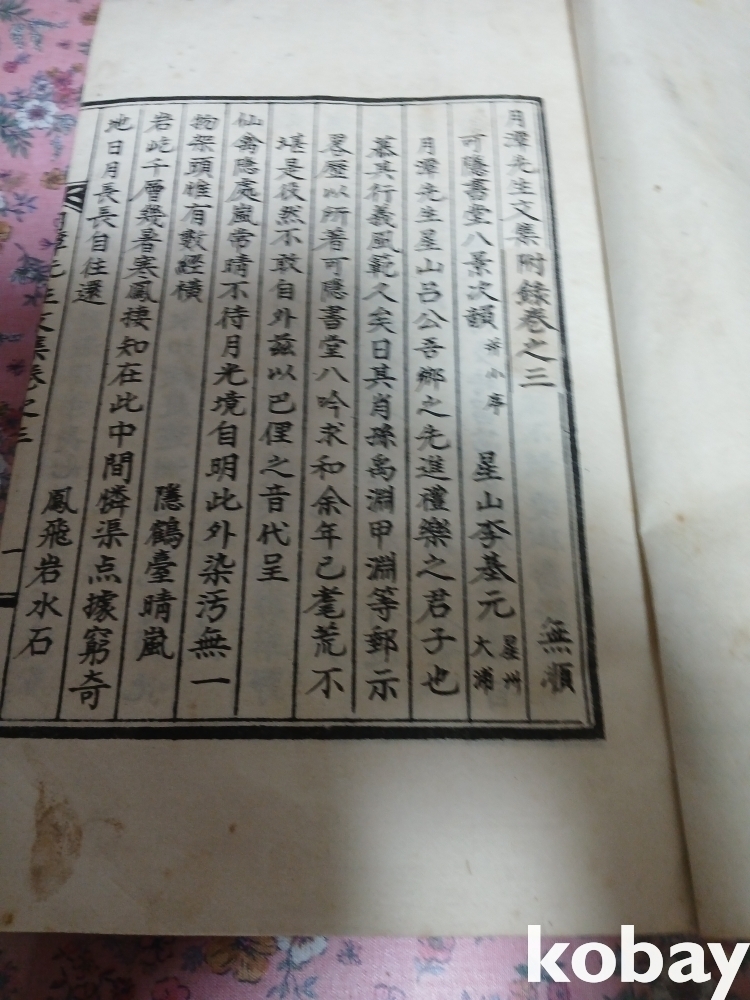 月潭先生文集附錄卷之三
無順
可隱書堂八景次韻 并小序 星山李基元 星州大浦
月潭先生星山呂公吾鄉之先進禮樂之君子也
慕其行義風範久矣日其肖孫禹淵甲淵等郵示
畧歷以所著可隱書堂八吟求和余年已耄荒不
堪是役然不敢自外茲以巴俚之音代呈
隱鶴臺晴嵐
仙禽隱處嵐常晴不待月光境自明此外染汚無一
物架頭惟有數經橫
鳳飛岩水石
岩屹千層幾暑寒鳳棲知在此中間憐渠点據窮奇
地日月長長自往還
月潭先生文集卷之三
一
kobay